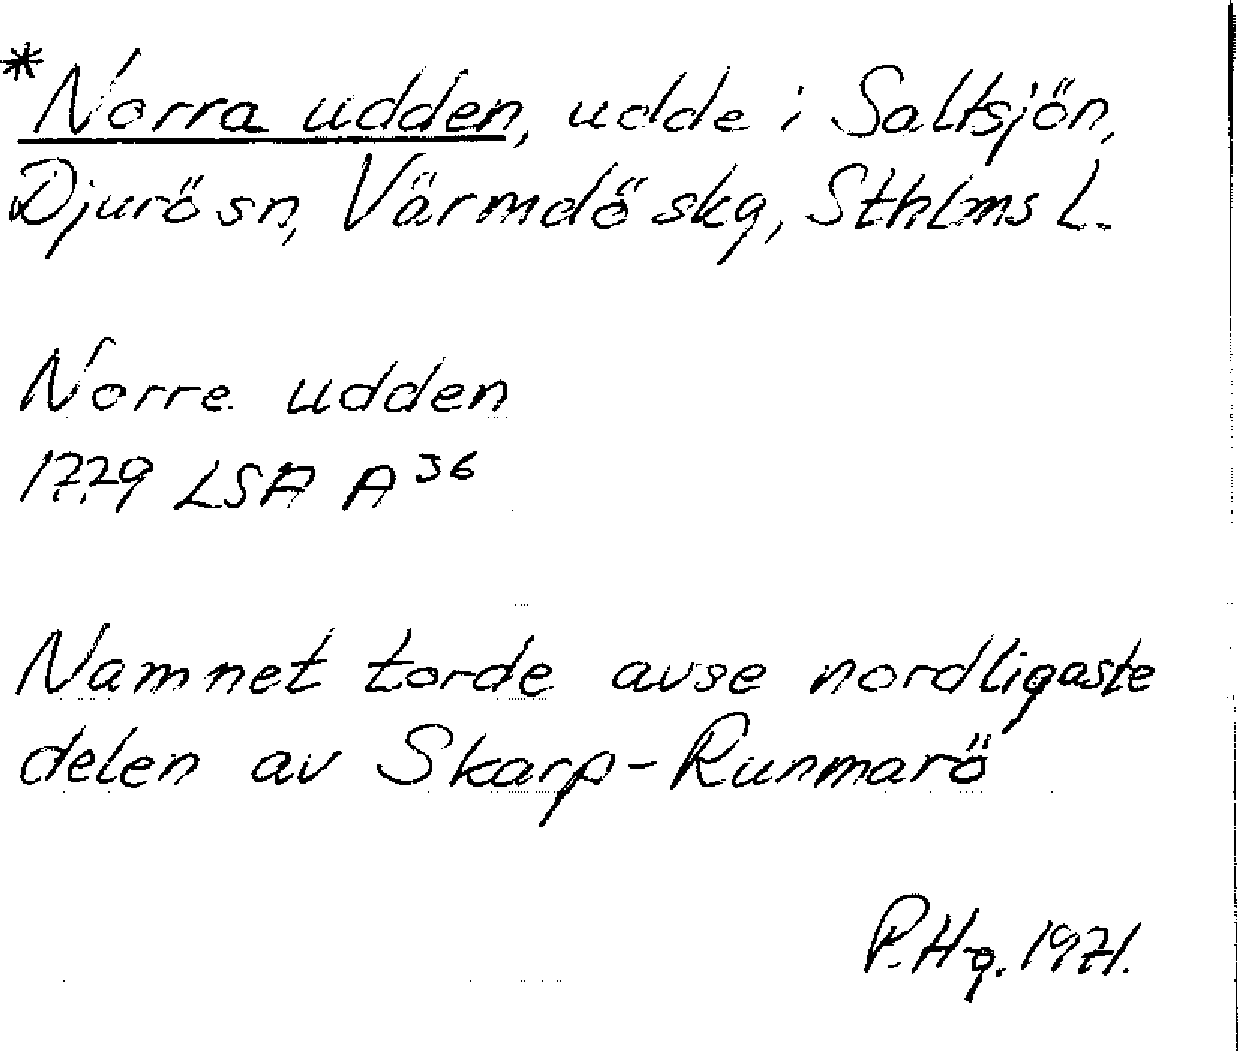 *Norra udden, udde i Saltsjön,
Djurö sn, Värmdö skg, Sthlms L.
Norre udden
1729 LSA A 36
Namnet torde avse nordligaste
delen av Skarp-Runmarö
P.Hg. 1971.